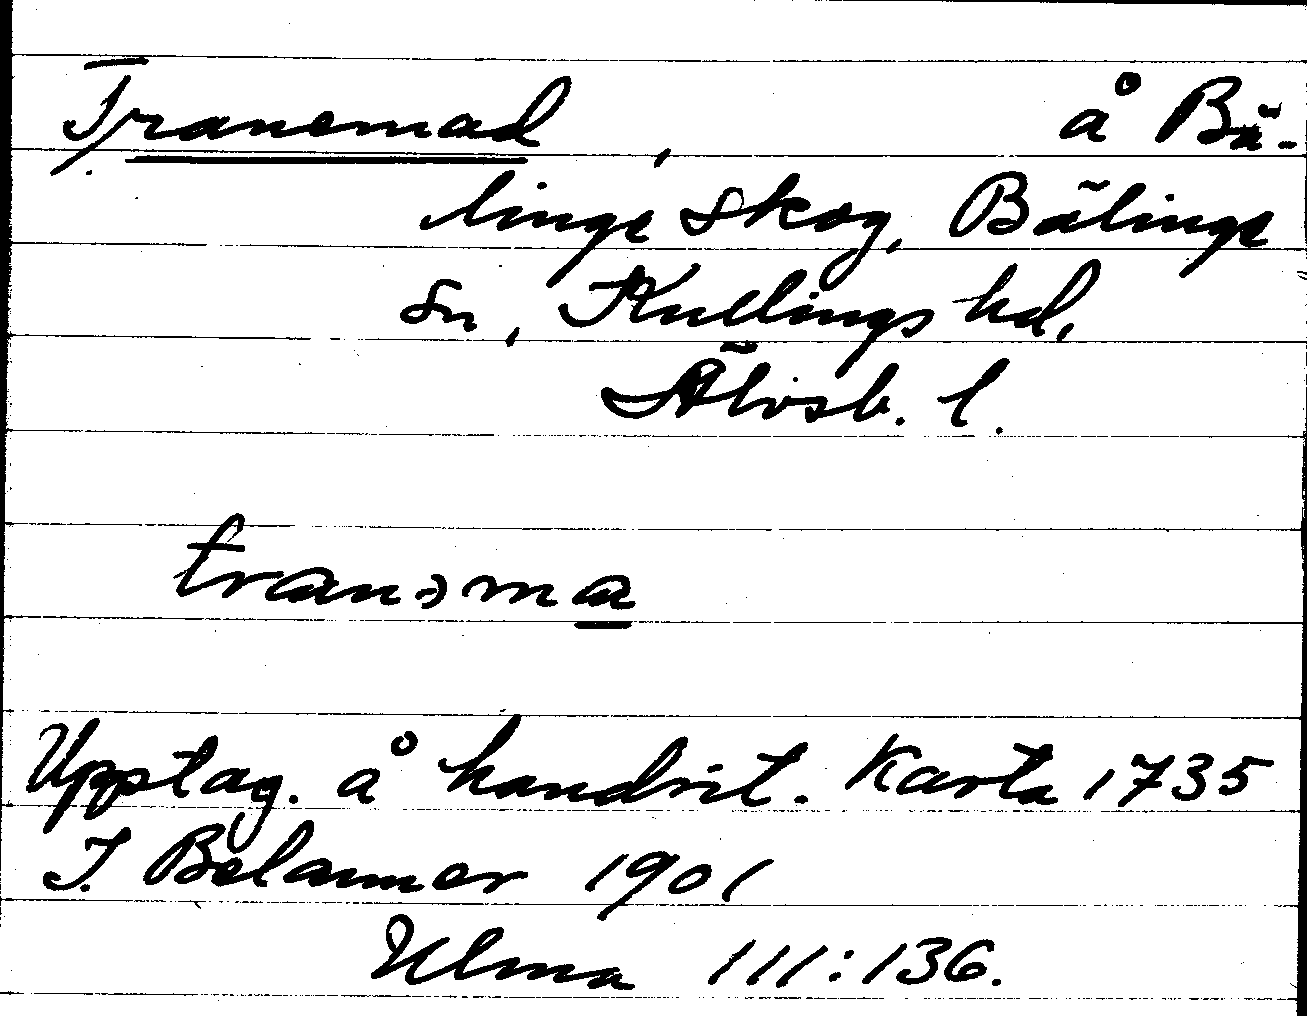 Tranemad, å Bä-
linge skog, Bälinge
sn, Kullings hd,
Älvsb. l.
tranəma
Upptag. å handrit. Karta 1735
J. Belanner 1901
Ulma 111:136.